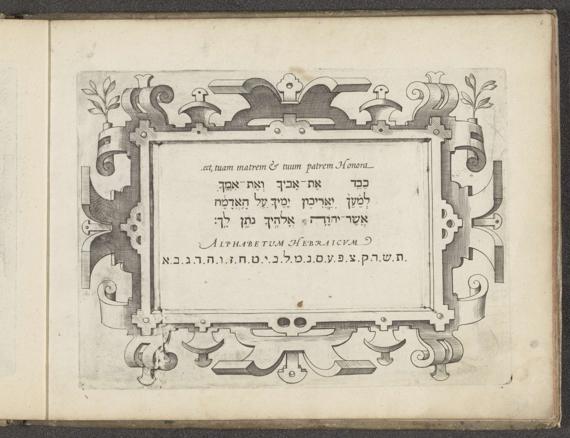 .ect, tuam matrem & tuum patrem Honora
כַבֵּד אֶת־אָבִיךָ וְאֶת־אִמֶּךָ
לְמַעַן יַאֲרִיכוּן יָמֶיךָ עַל הָאֲדָמָה
אֲשֶׁר־יְהוָה אֱלֹהֶיךָ נֹתֵן לָךְ׃
ALPHABETUM HEBRAICVM
א.ב.ג.ד.ה.ו.ז.ח.ט.י.כ.ל.מ.נ.ס.ע.פ.צ.ק.ר.ש.ת.